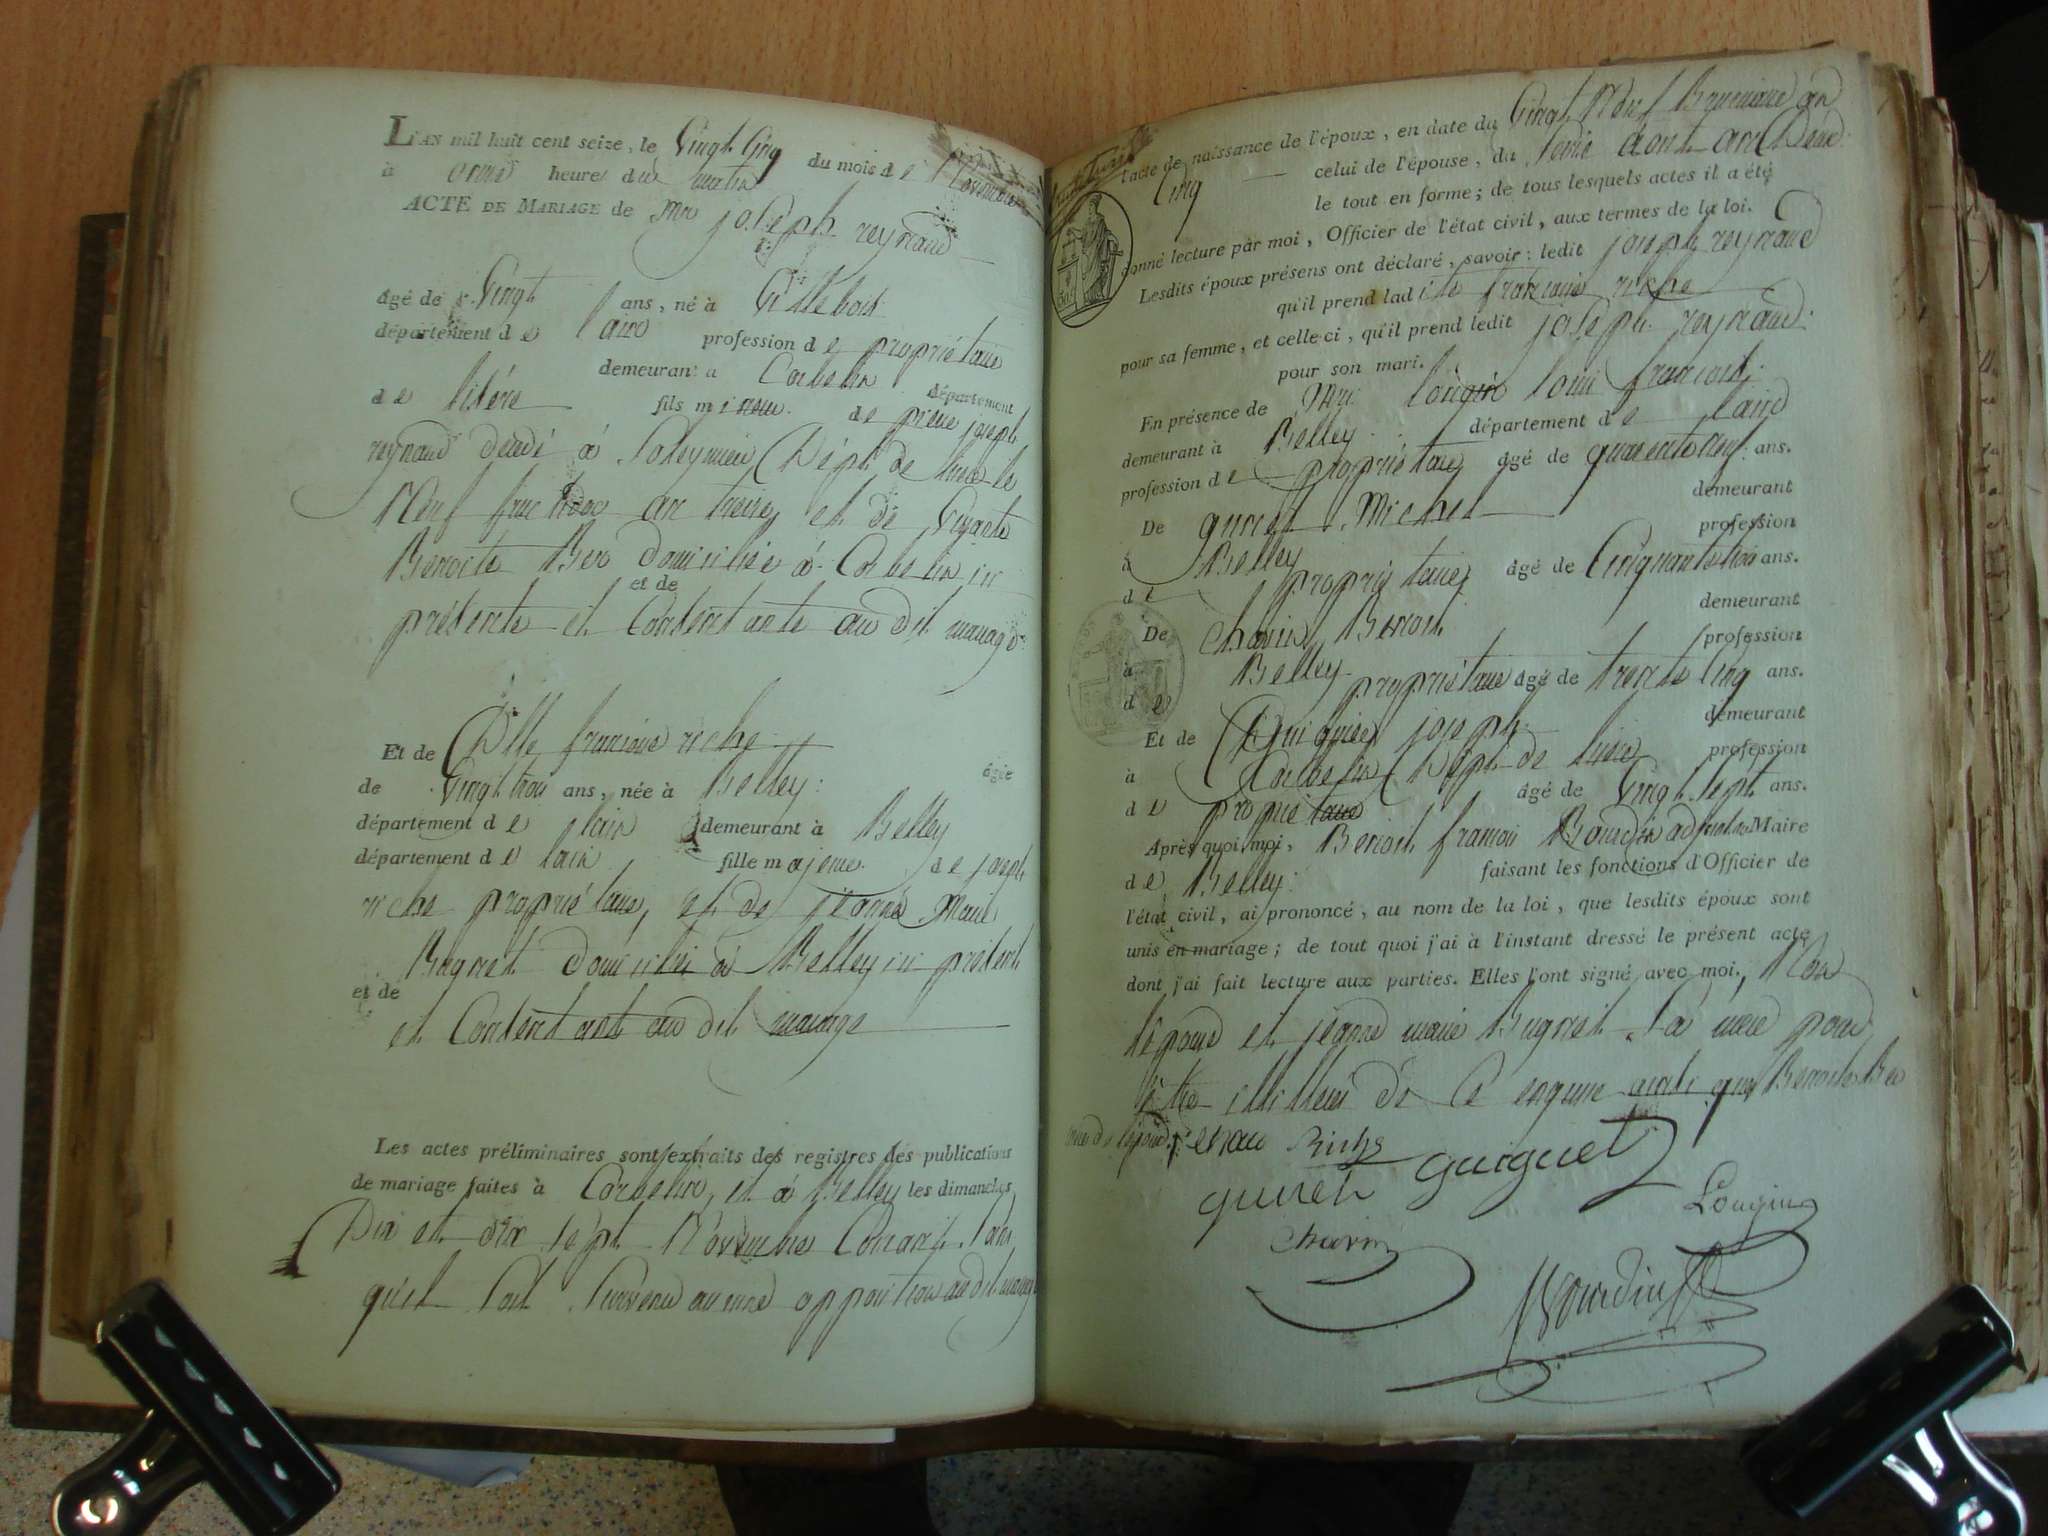 L'AN mil huit cent seize, le Vingt Cinq du mois de Novembre
à onze heures du matin
ACTE DE MARIAGE de Mr joseph reynaud
âgé de Vingt ans, né à Villebois
département de l'ain profession de propriétaire
demeurant à Corbelin département
de lisére fils mineur de pierre joseph
reynaud décédé à Soleymieu (Dépt. de lisere le
Neuf fructidor an treize, et de
Benoite Bero domiciliée à Corbelin ici
et de
présente et Consentante au dit mariage
Et de Dlle françoise riche âgée
de Vingt trois ans, née à Belley
département de lain demeurant à Belley
département de lain fille majeure de joseph
riche propriétaire, et de jeanne Marie
Bugnet domiciliés à Belley ici présent
et de
et Consentant au dit mariage
Les actes préliminaires sont extraits des registres des publications
de mariage faites à Corbelin, et à Belley les dimanches
Dix et dix sept Novembre Courant Sans
qu'il soit Survenu aucune opposition au dit mariage
l'acte de naissance de l'époux, en date du Vingt Neuf Brumaire an
Cinq celui de l'épouse, du
le tout en forme; de tous lesquels actes il a été
donné lecture par moi, Officier de l'état civil, aux termes de la loi.
Lesdits époux présens ont déclaré, savoir: ledit joseph reynaud
qu'il prend ladite françoise riche
pour sa femme, et celle-ci, qu'il prend ledit joseph reynaud
pour son mari.
En présence de Mrs longin loui françois
demeurant à Belley département de lain
profession de propriétaire âgé de quarante neuf ans.
De Michel demeurant
à Belley profession
de propriétaire âgé de Cinquante trois ans.
De Chavin Benoit demeurant
à Belley profession
de propriétaire âgé de trente Cinq ans.
Et de Guiguet joseph demeurant
à Corbelin (Dépt. de lisere profession
de propriétaire âgé de Vingt sept ans.
Après quoi, moi, Benoit françois Bourdin adjoint au Maire
de Belley faisant les fonctions d'Officier de
l'état civil, ai prononcé, au nom de la loi, que lesdits époux sont
unis en mariage; de tout quoi j'ai à l'instant dressé le présent acte
dont j'ai fait lecture aux parties. Elles l'ont signé avec moi, Non
lépouse et jeanne marie Bugnet Sa mère pour
être illiterés de Ce enquise ainsi que Benoite Bero
mere de lépoux. reynau Riche
Guiguet
Longin
Chavin
Bourdin